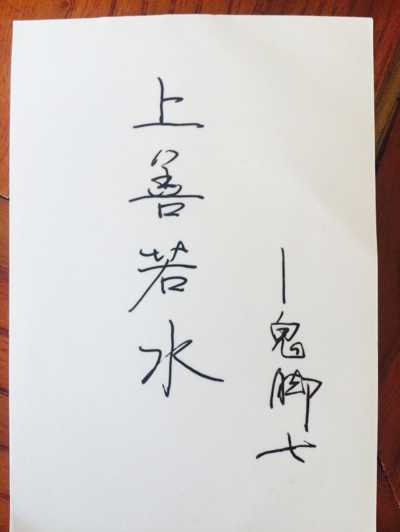 上善若水
—鬼脚七